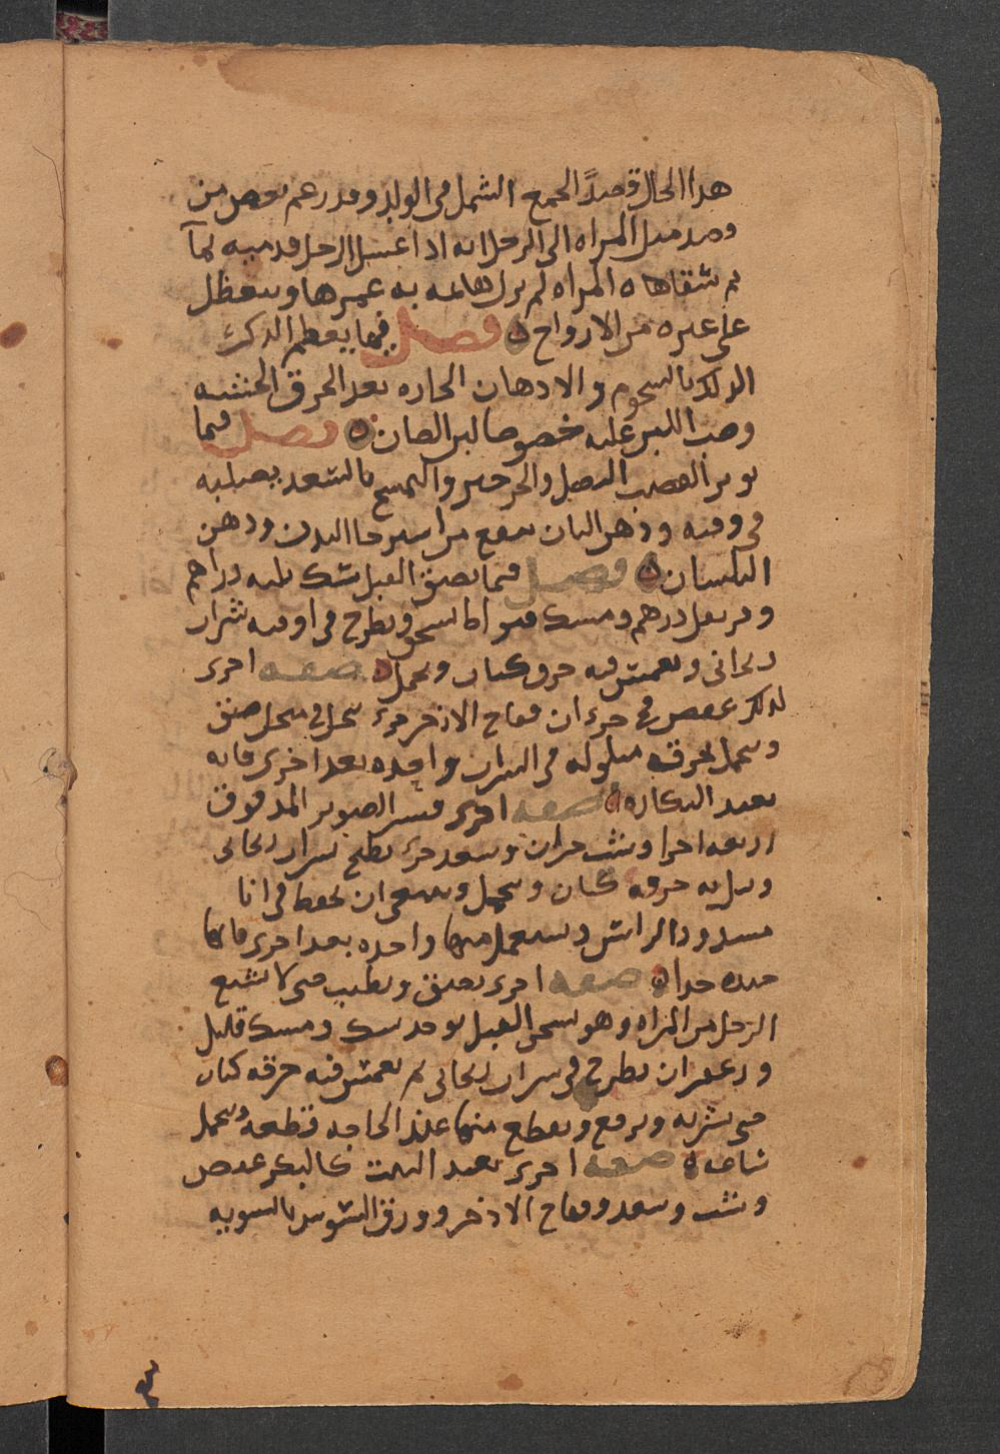 هذا الحال قصدًا لجمع الشمل في الولد وقد زعم بعض من
وصد ميل المراه الى الرجل انه اذا غسل الرجل قدميه بمآ
ثم سقاها ه المراه لم يزل هائمه به عمرها ويتعطل
على غيره من الارواح ه فصل فيما يعظم الذكر
الدلك بالشحوم والادهان الحاره بعد الخرق الخشنه
وصب اللبن عليه خصوصا لبن الضان ه فصل فيما
يوتر القضيب البصل والجرجير والتمسح بالسعد يصلبه
في وقته ودهن البان ينفع من استرخا البدن ودهن
البلسان ه فصل فيما يضيق القبل سك ثلثه دراهم
وقرنفل درهم ومسك قيراط يسحق ويطرح في اوقيه شراب
ريحاني ويغمس فيه خرق كتان وتحمل ه صفه اخرى
لذلك عفص فج جزءان فقاح الاذخر جزء ينخل في منخل ضيق
ويتحمل بخرقه مبلوله في الشراب واحده بعد اخرى فانه
يعيد البكاره ه صفه اخرى قشر الصنوبر المدقوق
اربعه اجزا وشب جزان وسعد جزء يطبخ بشراب ريحاني
ويبل به خرقه كتان وتحمل وينبغي ان تحفظ في انا
مسدود الراس ويستعمل منها واحده بعد اخرى فانها
جيده جدا ه صفه اخرى تضيق وتطيب حتى لا يشبع
الرجل من المراه وهو يسخن القبل يوخذ سك ومسك قليل
وزعفران يطرح في شراب ريحاني ثم يغمس فيه خرقه كتان
حتى تشربه ويرفع ويقطع منها عند الحاجه قطعه وتحمل
شافه ه صفه اخرى تعيد الثيب كالبكر عفص
وشب وسعد وفقاح الاذخر وورق السوسن بالسويه